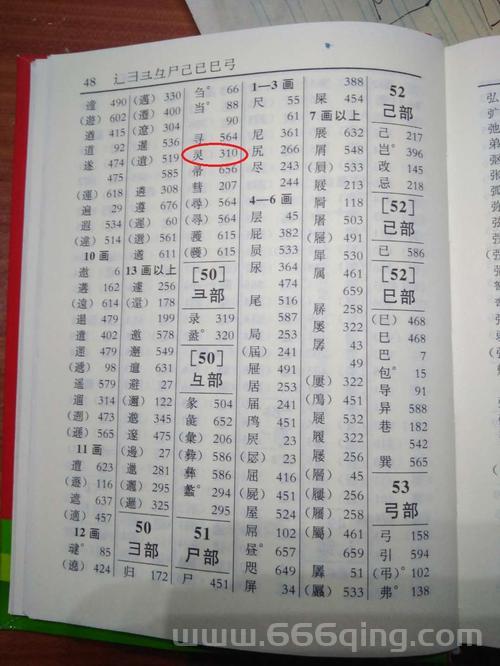 48 辶彐彑尸己已巳弓
遻 490
(遊) 602
遒 415
道 92
遂 474
475
(運) 618
遍 29
(違) 535
(達) 514
10 画
遨 6
遘 162
遢 479
遣 402
(遞) 98
遥 579
遛 314
(遡) 473
(遜) 565
11 画
遭 623
(遯) 116
遮 637
(適) 457
12 画
遳° 85
(遶) 424
(邁) 330
(遷) 400
(遼) 304
暹 536
(遺) 519
585
遴 308
遵 676
(邇) 60
(選) 561
遹 611
13 画以上
邃 256
(還) 178
199
邀 578
邅 631
避 27
(邇) 122
邈 345
邃 475
(邊) 27
邋 281
(邏) 295
(邐) 325
50
彐部
归 172
刍° 66
当° 88
90
寻 564
灵 310
帚 656
彗 207
(尋) 564
(尋) 564
彟 615
(彠) 615
[50]
彐部
录 319
盝° 320
[50]
彑部
彖 504
彘 652
(彙) 206
(彝) 586
彝 586
蠡° 294
295
51
尸部
尸 451
1—3 画
尺 55
61
尼 361
尻 266
尽 243
244
4—6 画
层 45
屁 382
屃 533
尿 364
474
尾 516
587
局 253
(屆) 241
屉 491
居 253
届 241
鸤 451
屄 23
(屄) 23
屈 416
(屍) 451
屋 524
屌 102
昼° 657
咫 649
屏 34
388
屎 454
7 画以上
展 632
屑 548
(屓) 533
屙 118
屠 503
(屜) 491
犀 530
属 461
659
孱 258
屡 322
孱 43
49
(屢) 322
(鳲) 451
屣 532
履 322
屦 258
(層) 45
(屨) 258
(屬) 461
659
羼 51
(屭) 533
52
己部
己 217
岂° 396
改 145
忌 218
[52]
已部
已 586
[52]
巳部
(巳) 468
巳 468
巴 7
包° 15
导 91
异 588
巷 182
542
巽 565
53
弓部
弓 158
引 594
(弔)° 102
弗° 138
www.666qing.com